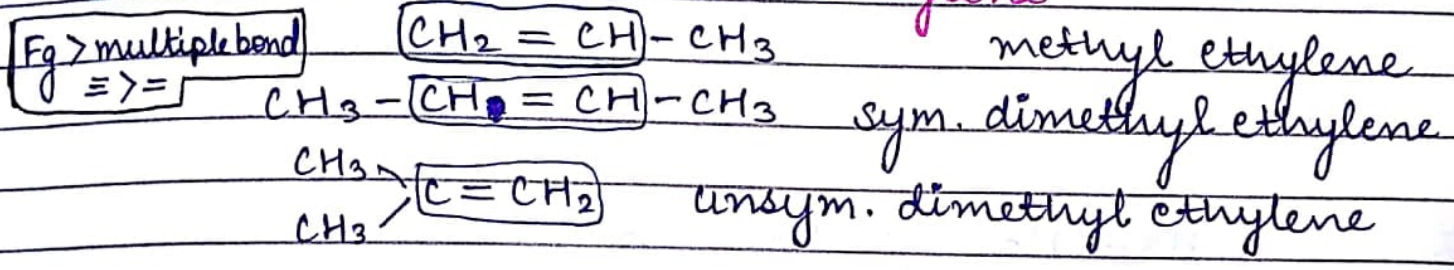 Fg > multiple bond
≡ > =
CH2 = CH - CH3 methyl ethylene
CH3 - CH = CH - CH3 sym. dimethyl ethylene
CH3
C = CH2 unsym. dimethyl ethylene
CH3